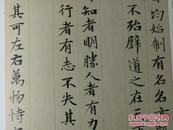 均始制有名名
不殆譬道之在
知者明勝人者有力
行者有志不失其
其可左右萬物恃